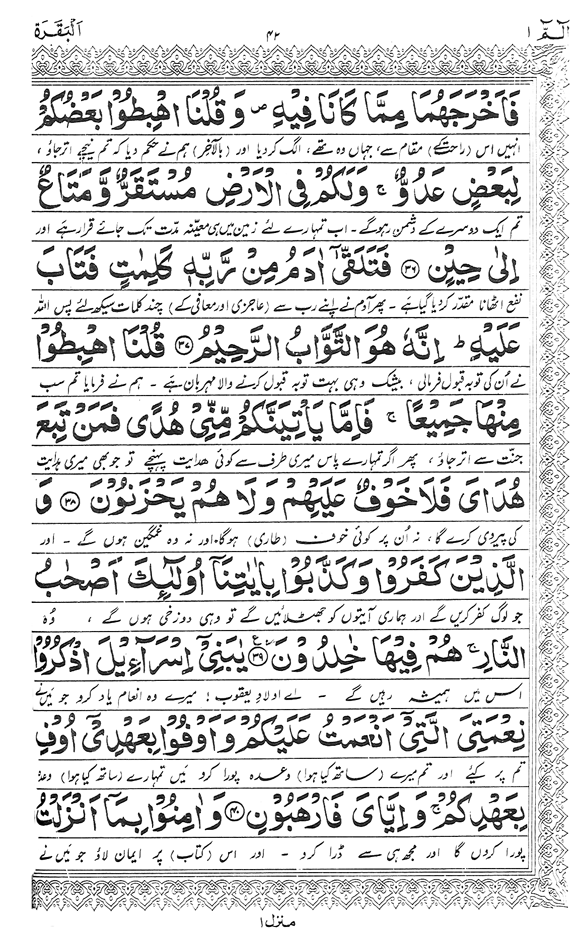 الٓمّٓ ۱ ۴۲ اَلْبَقَرَة
فَاَخْرَجَهُمَا مِمَّا كَانَا فِيْهِ ۪ وَ قُلْنَا اهْبِطُوْا بَعْضُكُمْ
انہیں اس (راحت کے) مقام سے، جہاں وہ تھے، الگ کر دیا اور (بالآخر) ہم نے حکم دیا کہ تم نیچے اتر جاؤ،
لِبَعْضٍ عَدُوٌّ ۚ وَلَكُمْ فِی الْاَرْضِ مُسْتَقَرٌّ وَّ مَتَاعٌ
تم ایک دوسرے کے دشمن رہو گے۔ اب تمہارے لئے زمین میں ہی معیّنہ مدّت تک جائے قرار ہے اور
اِلٰی حِيْنٍ ۳۶ فَتَلَقّٰۤی اٰدَمُ مِنْ رَّبِّهٖ كَلِمٰتٍ فَتَابَ
نفع اٹھانا مقدّر کر دیا گیا ہے۔ پھر آدم نے اپنے رب سے (عاجزی اور معافی کے) چند کلمات سیکھ لئے پس اللہ
عَلَيْهِ ؕ اِنَّهٗ هُوَ التَّوَّابُ الرَّحِيْمُ ۳۷ قُلْنَا اهْبِطُوْا
نے اُن کی توبہ قبول فرمالی، بیشک وہی بہت توبہ قبول کرنے والا مہربان ہے۔ ہم نے فرمایا تم سب
مِنْهَا جَمِيْعًا ۚ فَاِمَّا يَاْتِيَنَّكُمْ مِّنِّیْ هُدًی فَمَنْ تَبِعَ
جنّت سے اتر جاؤ، پھر اگر تمہارے پاس میری طرف سے کوئی ہدایت پہنچے تو جو بھی میری ہدایت
هُدَایَ فَلَا خَوْفٌ عَلَيْهِمْ وَلَا هُمْ يَحْزَنُوْنَ ۳۸ وَ
کی پیروی کرے گا، نہ اُن پر کوئی خوف (طاری) ہوگا اور نہ وہ غمگین ہوں گے۔ اور
الَّذِيْنَ كَفَرُوْا وَكَذَّبُوْا بِاٰيٰتِنَاۤ اُولٰٓئِكَ اَصْحٰبُ
جو لوگ کفر کریں گے اور ہماری آیتوں کو جھٹلائیں گے تو وہی دوزخی ہوں گے، وُہ
النَّارِ ۚ هُمْ فِيْهَا خٰلِدُوْنَ ۳۹ يٰبَنِیْۤ اِسْرَآءِيْلَ اذْكُرُوْا
اس میں ہمیشہ رہیں گے۔ اے اولادِ یعقوب! میرے وہ انعام یاد کرو جو میں نے
نِعْمَتِیَ الَّتِیْۤ اَنْعَمْتُ عَلَيْكُمْ وَ اَوْفُوْا بِعَهْدِیْۤ اُوْفِ
تم پر کئے اور تم میرے (ساتھ کیا ہوا) وعدہ پورا کرو میں تمہارے (ساتھ کیا ہوا) وعدہ
بِعَهْدِكُمْ ۚ وَ اِيَّایَ فَارْهَبُوْنِ ۴۰ وَ اٰمِنُوْا بِمَاۤ اَنْزَلْتُ
پورا کروں گا اور مجھ ہی سے ڈرا کرو۔ اور اس (کتاب) پر ایمان لاؤ جو میں نے
منزل ۱